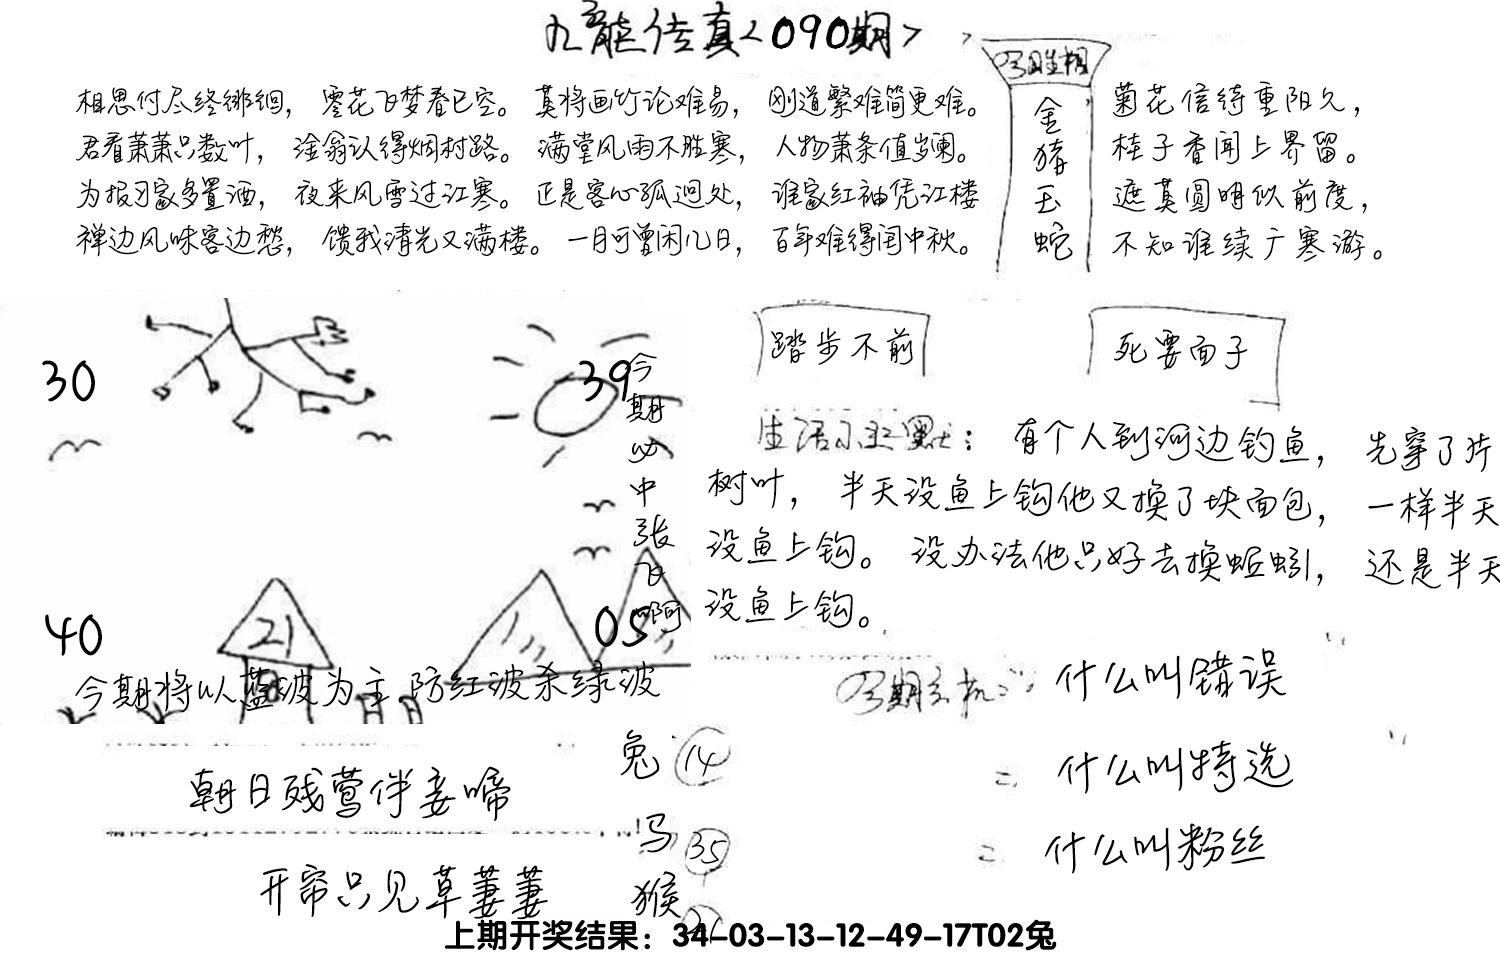 九龙传真<090期>
相思付尽终徘徊，零花飞梦春已空。莫将画竹论难易，刚道繁难简更难。
君看萧萧只数叶，淦翁认得烟村路。满堂风雨不胜寒，人物萧条值岁阑。
为报习家多置酒，夜来风雪过江寒。正是客心孤迥处，谁家红袖凭江楼
禅边风味客边愁，馈我清光又满楼。一日可曾闲几日，百年难得闰中秋。
金
猪
玉
蛇
菊花信待重阳久，
桂子香闻上界留。
遮莫圆明似前度，
不知谁续广寒游。
30
39
40
21
05
今期必中张飞啊
今期将以蓝波为主.防红波杀绿波
踏步不前
死要面子
有个人到河边钓鱼，先穿了片
树叶，半天没鱼上钩他又换了块面包，一样半天
没鱼上钩。没办法他只好去换蚯蚓，还是半天
没鱼上钩。
什么叫错误
二 什么叫特选
二 什么叫粉丝
朝日残莺伴妾啼
开帘只见草萋萋
兔 14
马 35
猴
上期开奖结果：34-03-13-12-49-17T02兔